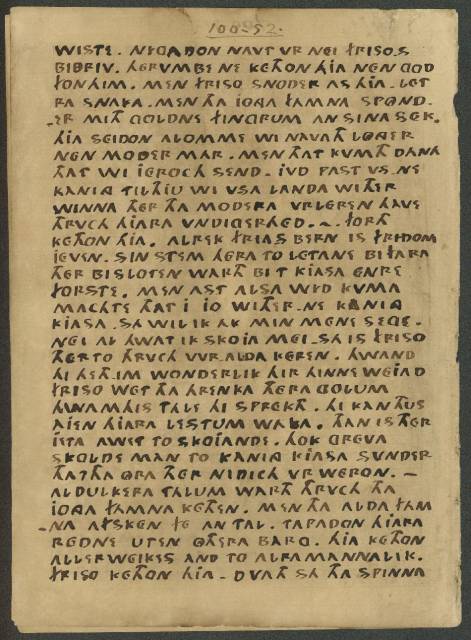 100-52.
WISTE. NIGADON NAVT VR NEI FRISO.S
BIDRIV. HERVMBE NE KETHON HJA NEN GOD
FON HIM. MEN FRISO SNODER AS HJA. LET
RA SNAKA. MEN THA JONGA FAMNA SPOND-
-ER MITH GOLDNE FINGRUM AN SINA SEK.
HJA SEIDON ALOMME WI NAVATH LONGER
NEN MODER MAR. MEN THAT KVMTH DANA
THAT WI JEROCH SEND. JVD PAST VS NE
KANING TILTHJU WI VSA LANDA WITHER
WINNA THER THA MODERA VRLEREN HAVE
THRVCH HJARA VNDIGERHED. ~. FORTH
KETHON HJA. ALREK FRIAS BERN IS FRIDOM
JEVEN. SIN STEM HERA TO LETANE BIFARA
THER BISLOTEN WARTH BI T KJASA ENRE
FORSTE. MEN AST ALSA WYD KVMA
MACHTE THAT I JO WITHER NE KANING
KJASA. SA WIL IK AK MIN MENE SEGE.
NEI AL HWAT IK SKOJA MEI. SA IS FRISO
THERTO THRVCH WR.ALDA KEREN. HWAND
HI HETH.IM WONDERLIK HIR HINNE WEIAD
FRISO WET THA HRENKA THERA GOLUM
HWAMHIS TALE HI SPREKTH. HI KAN THUS
AJEN HJARA LESTUM WAKA. THAN IS THER
JETA AWET TO SKOJANDE. HOK GREVA
SKOLDE MAN TO KANING KJASA SUNDER
THATTHA ORA THER NIDICH VR WERON. —
ALDULKERA TALUM WARTH THRVCH THA
JONGA FAMNA KETHEN. MEN THA ALDA FAM
-NA AFSKEN FE AN TAL. TAPADON HJARA
REDNE UTEN OTHERA BARG. HJA KETHON
ALLERWEIKES AND TO ALRAMANNALIK.
FRISO KETHON HJA. DVATH SA THA SPINNA